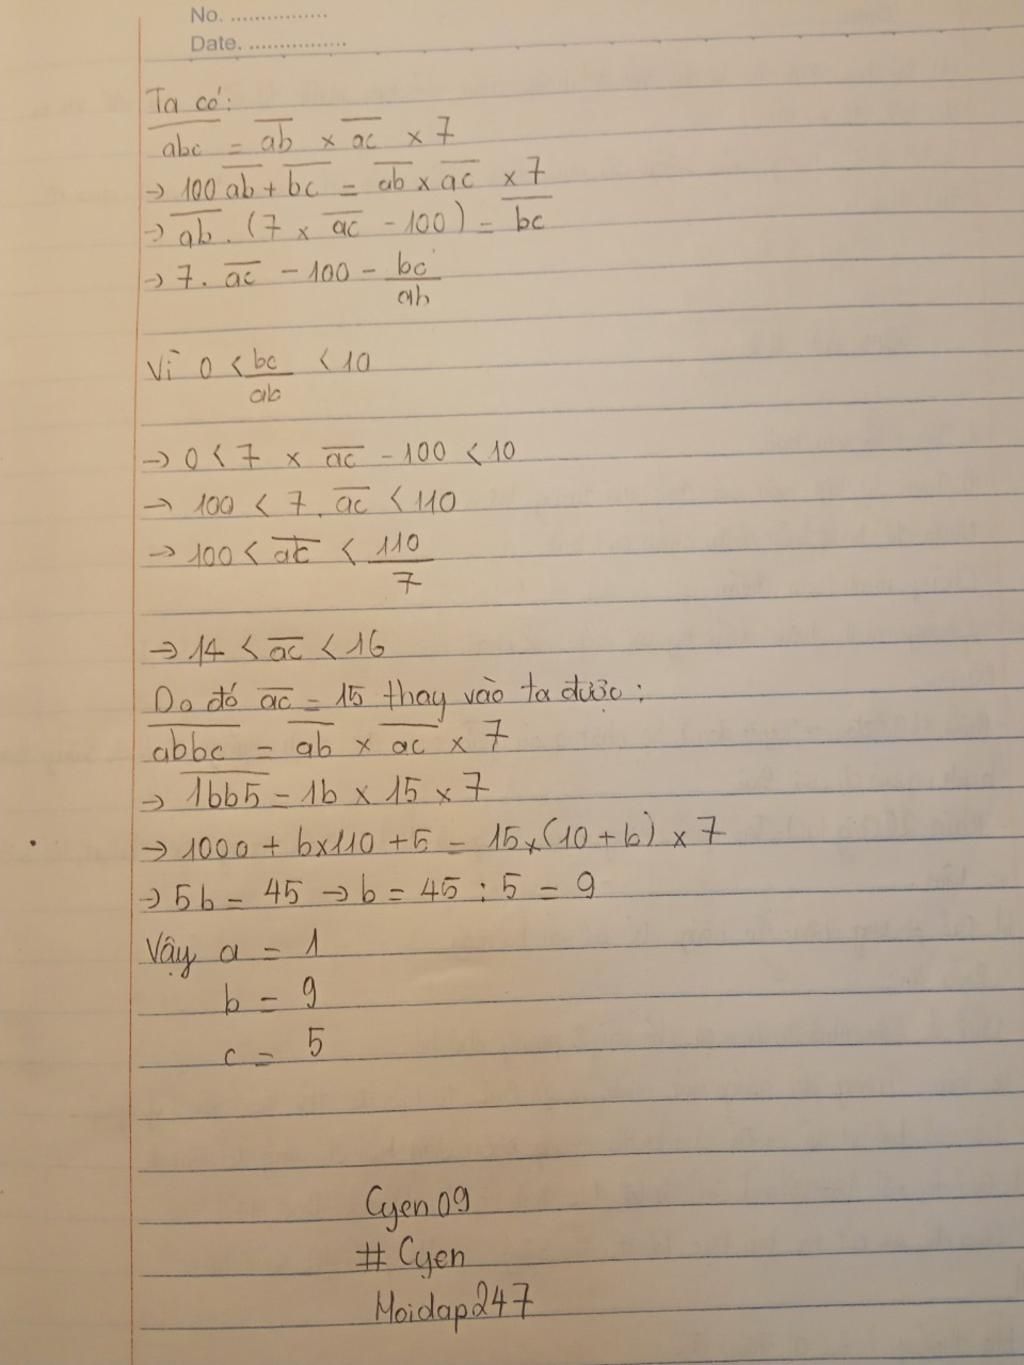 No. ................
Date. ................
Ta có:
abc = ab × ac × 7
→ 100 ab + bc = ab × ac × 7
→ ab . (7 × ac - 100) = bc
→ 7. ac - 100 - bc/ab
Vì 0 < bc/ab < 10
→ 0 < 7 × ac - 100 < 10
→ 100 < 7. ac < 110
→ 100 < ac < 110/7
→ 14 < ac < 16
Do đó ac = 15 thay vào ta được:
abbc = ab × ac × 7
→ 1bb5 = 1b × 15 × 7
→ 1000 + b×110 + 5 = 15×(10 + b) × 7
→ 5b = 45 → b = 45 : 5 = 9
Vậy a = 1
b = 9
c = 5
Cyen09
#Cyen
Moidap247